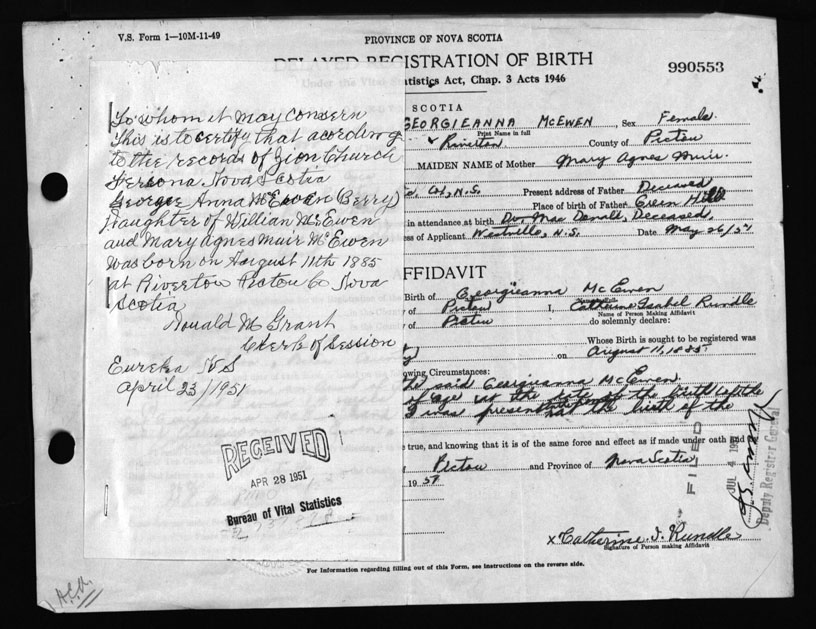 V.S. Form 1—10M-11-49
PROVINCE OF NOVA SCOTIA
DELAYED REGISTRATION OF BIRTH
990553
Under the Vital Statistics Act, Chap. 3 Acts 1946
To whom it may consern
This is to certify that acording
to the records of Zion Church
Ferrona Nova Scotia
George Anna McEwen (Berry)
Daughter of William McEwen
and Mary Agnes Muir McEwen
was born on August 11th 1885
at Riverton Pictou Co Nova
Scotia
Donald M Grant
Clerk of Session
Eureka N S
April 23/1951
RECEIVED
APR 28 1951
Bureau of Vital Statistics
SCOTIA
GEORGIEANNA McEWEN Sex Female.
Print Name in full
Riverton County of Pictou
MAIDEN NAME of Mother Mary Agnes Muir.
Co., N.S. Present address of Father Deceased
Place of birth of Father Green Hill
in attendance at birth Dr. Mac Donald, Deceased.
ess of Applicant Westville, N.S. Date May 26/51
AFFIDAVIT
Birth of Georgieanna McEwen
of Pictou I, Catherine Isabel Rundle
Name of Person Making Affidavit
of Pictou do solemnly declare:
Whose Birth is sought to be registered was
on August 11, 1885.
owing Circumstances:
the said Georgieanna McEwen.
of age at the
I was present at the birth of the
true, and knowing that it is of the same force and effect as if made under oath and
of Pictou and Province of Nova Scotia
1951
FILED
JUL 4 1951
Deputy Registrar General
x Catherine I. Rundle
Signature of Person making Affidavit
For Information regarding filling out of this Form, see instructions on the reverse side.